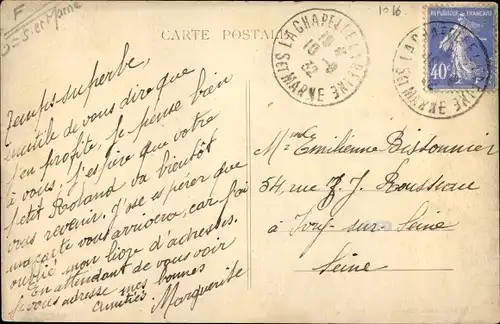 F
S-et-Marne
1016.
CARTE POSTALE
LA CHAPELLE LA REINE
SEINE ET MARNE
10
32
RÉPUBLIQUE FRANÇAISE
40c
Temps superbe,
inutile de vous dire que
j'en profite, je pense bien
à vous; j'espère que votre
petit Roland va bientôt
vous revenir. J'ose espérer que
ma carte vous arrivera, car j'ai
oublié mon livre d'adresses.
En attendant de vous voir
je vous adresse mes bonnes
amitiés
Marguerite
Mme Emilienne Bissonnier
54, rue J. J. Rousseau
à Ivry-sur-Seine
Seine